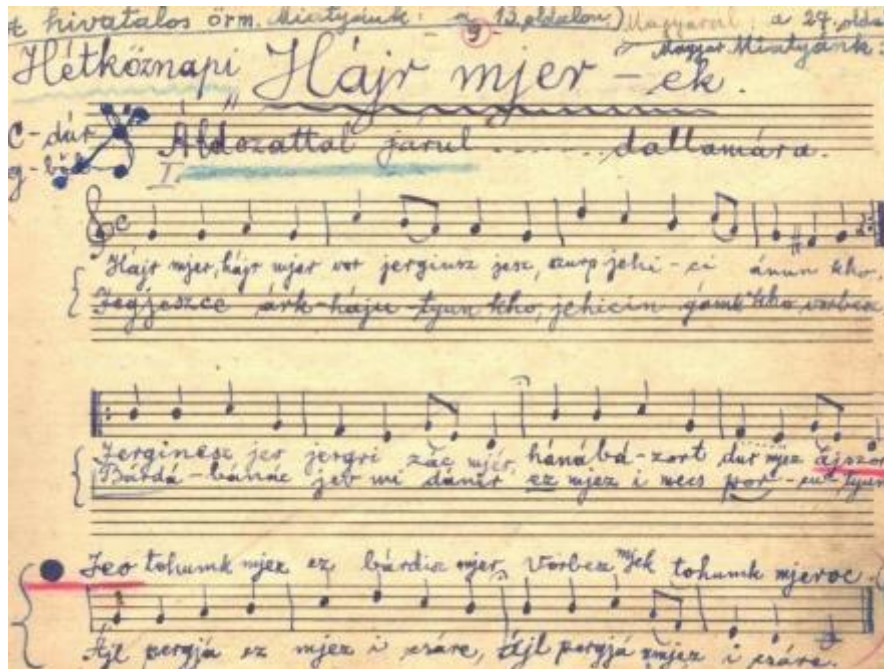 hivatalos örm. Miatyánk: a 13. oldalon.) Magyarul: a 24. olda
9
Magyar Miatyánk:
Hétköznapi Hájr mjer - ek.
C-dúr
g-ből
"Áldozattal járul ........ dallamára.
I.
Hájr mjer, hájr mjer vor jergiusz jesz, szurp jehi - ci ánun kho,
Jegjeszce árk-háju-tyun kho, jehicin gámk kho vorbesz
Jerginesz jev jergri zác mjér, hánábá-zort dur mjez ájszor
Bárdá-bánác jeb mi dánir ez mjez i mecs por-cu-tyun
Jeo tohumk mjez ez bárdisz mjer, Vorbesz mjek tohumk mjeroc.
Ájl pergjá ez mjez i csáre, ájl pergjá zmjez i csáre.